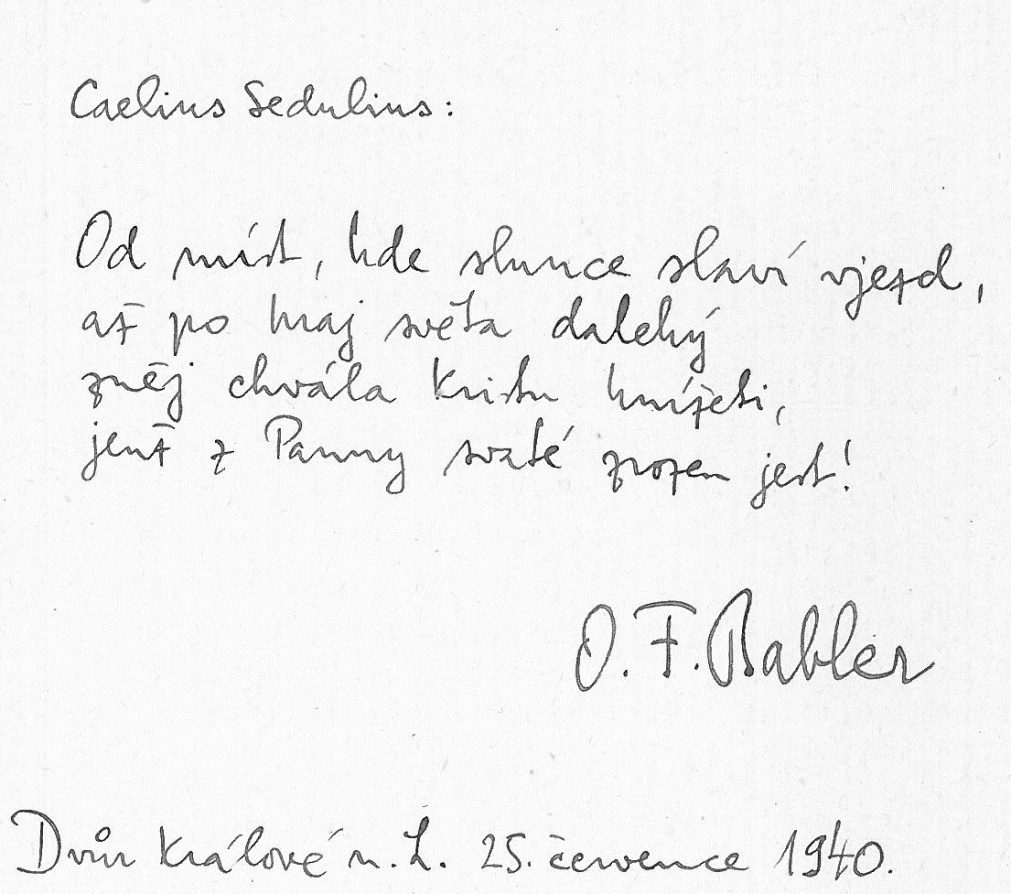 Caelius Sedulius:
Od míst, kde slunce slaví vjezd,
až po kraj světa daleký
zněj chvála Kristu knížeti,
jenž z Panny svaté zrozen jest!
O. F. Babler
Dvůr Králové n. L. 25. července 1940.